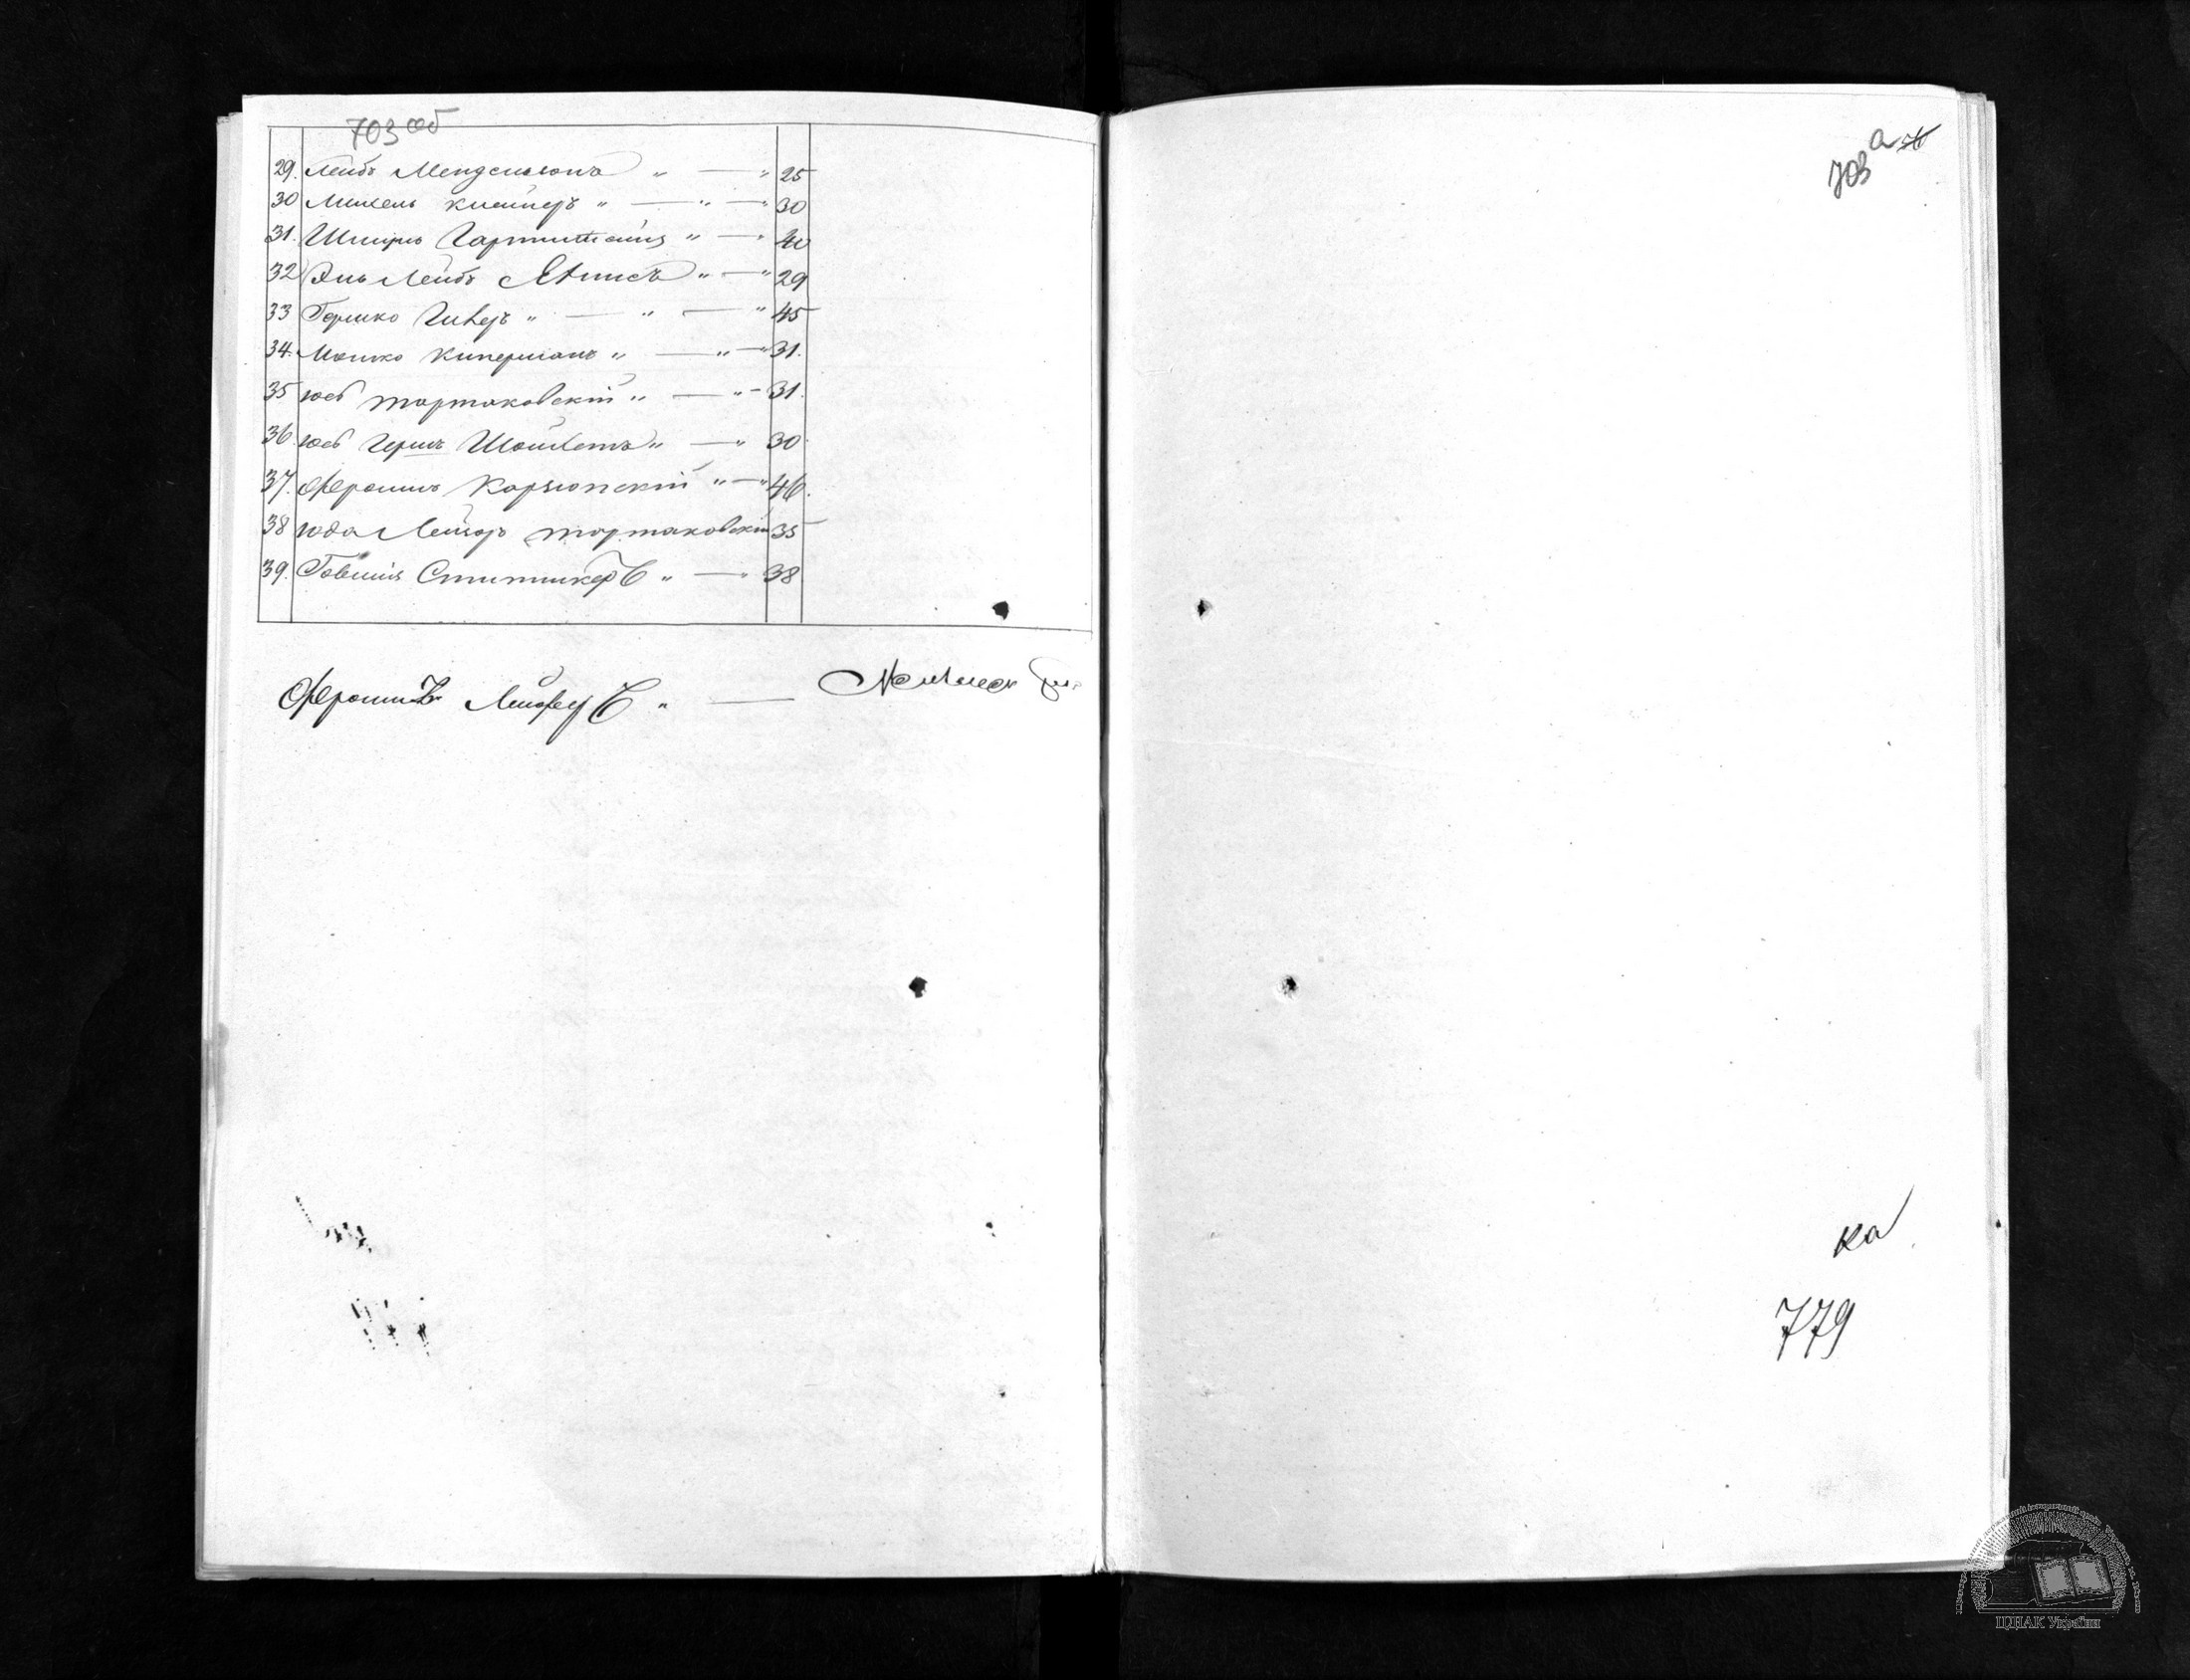 703 об
29. Лейбъ Мендельсонъ " — " 25
30 Михель Клейнеръ " — " — " 30
31. Шмуль Гартштейнъ " — " 40
32 Эль Лейбъ " — " 29
33 Гершко " — " — " 45
34. Мошко Киперманъ " — " — " 31.
35 Юсь Тартаковскій " — " — 31.
36. Юсь Гершъ Шойхетъ " — " 30
37. Фроимъ Карлюнскій " — " 46.
38 Юда Лейзоръ Тартаковскій 35
39. Говшія " — " 38
Фроимъ " —
703 а
ка
779
ЦДІАК України